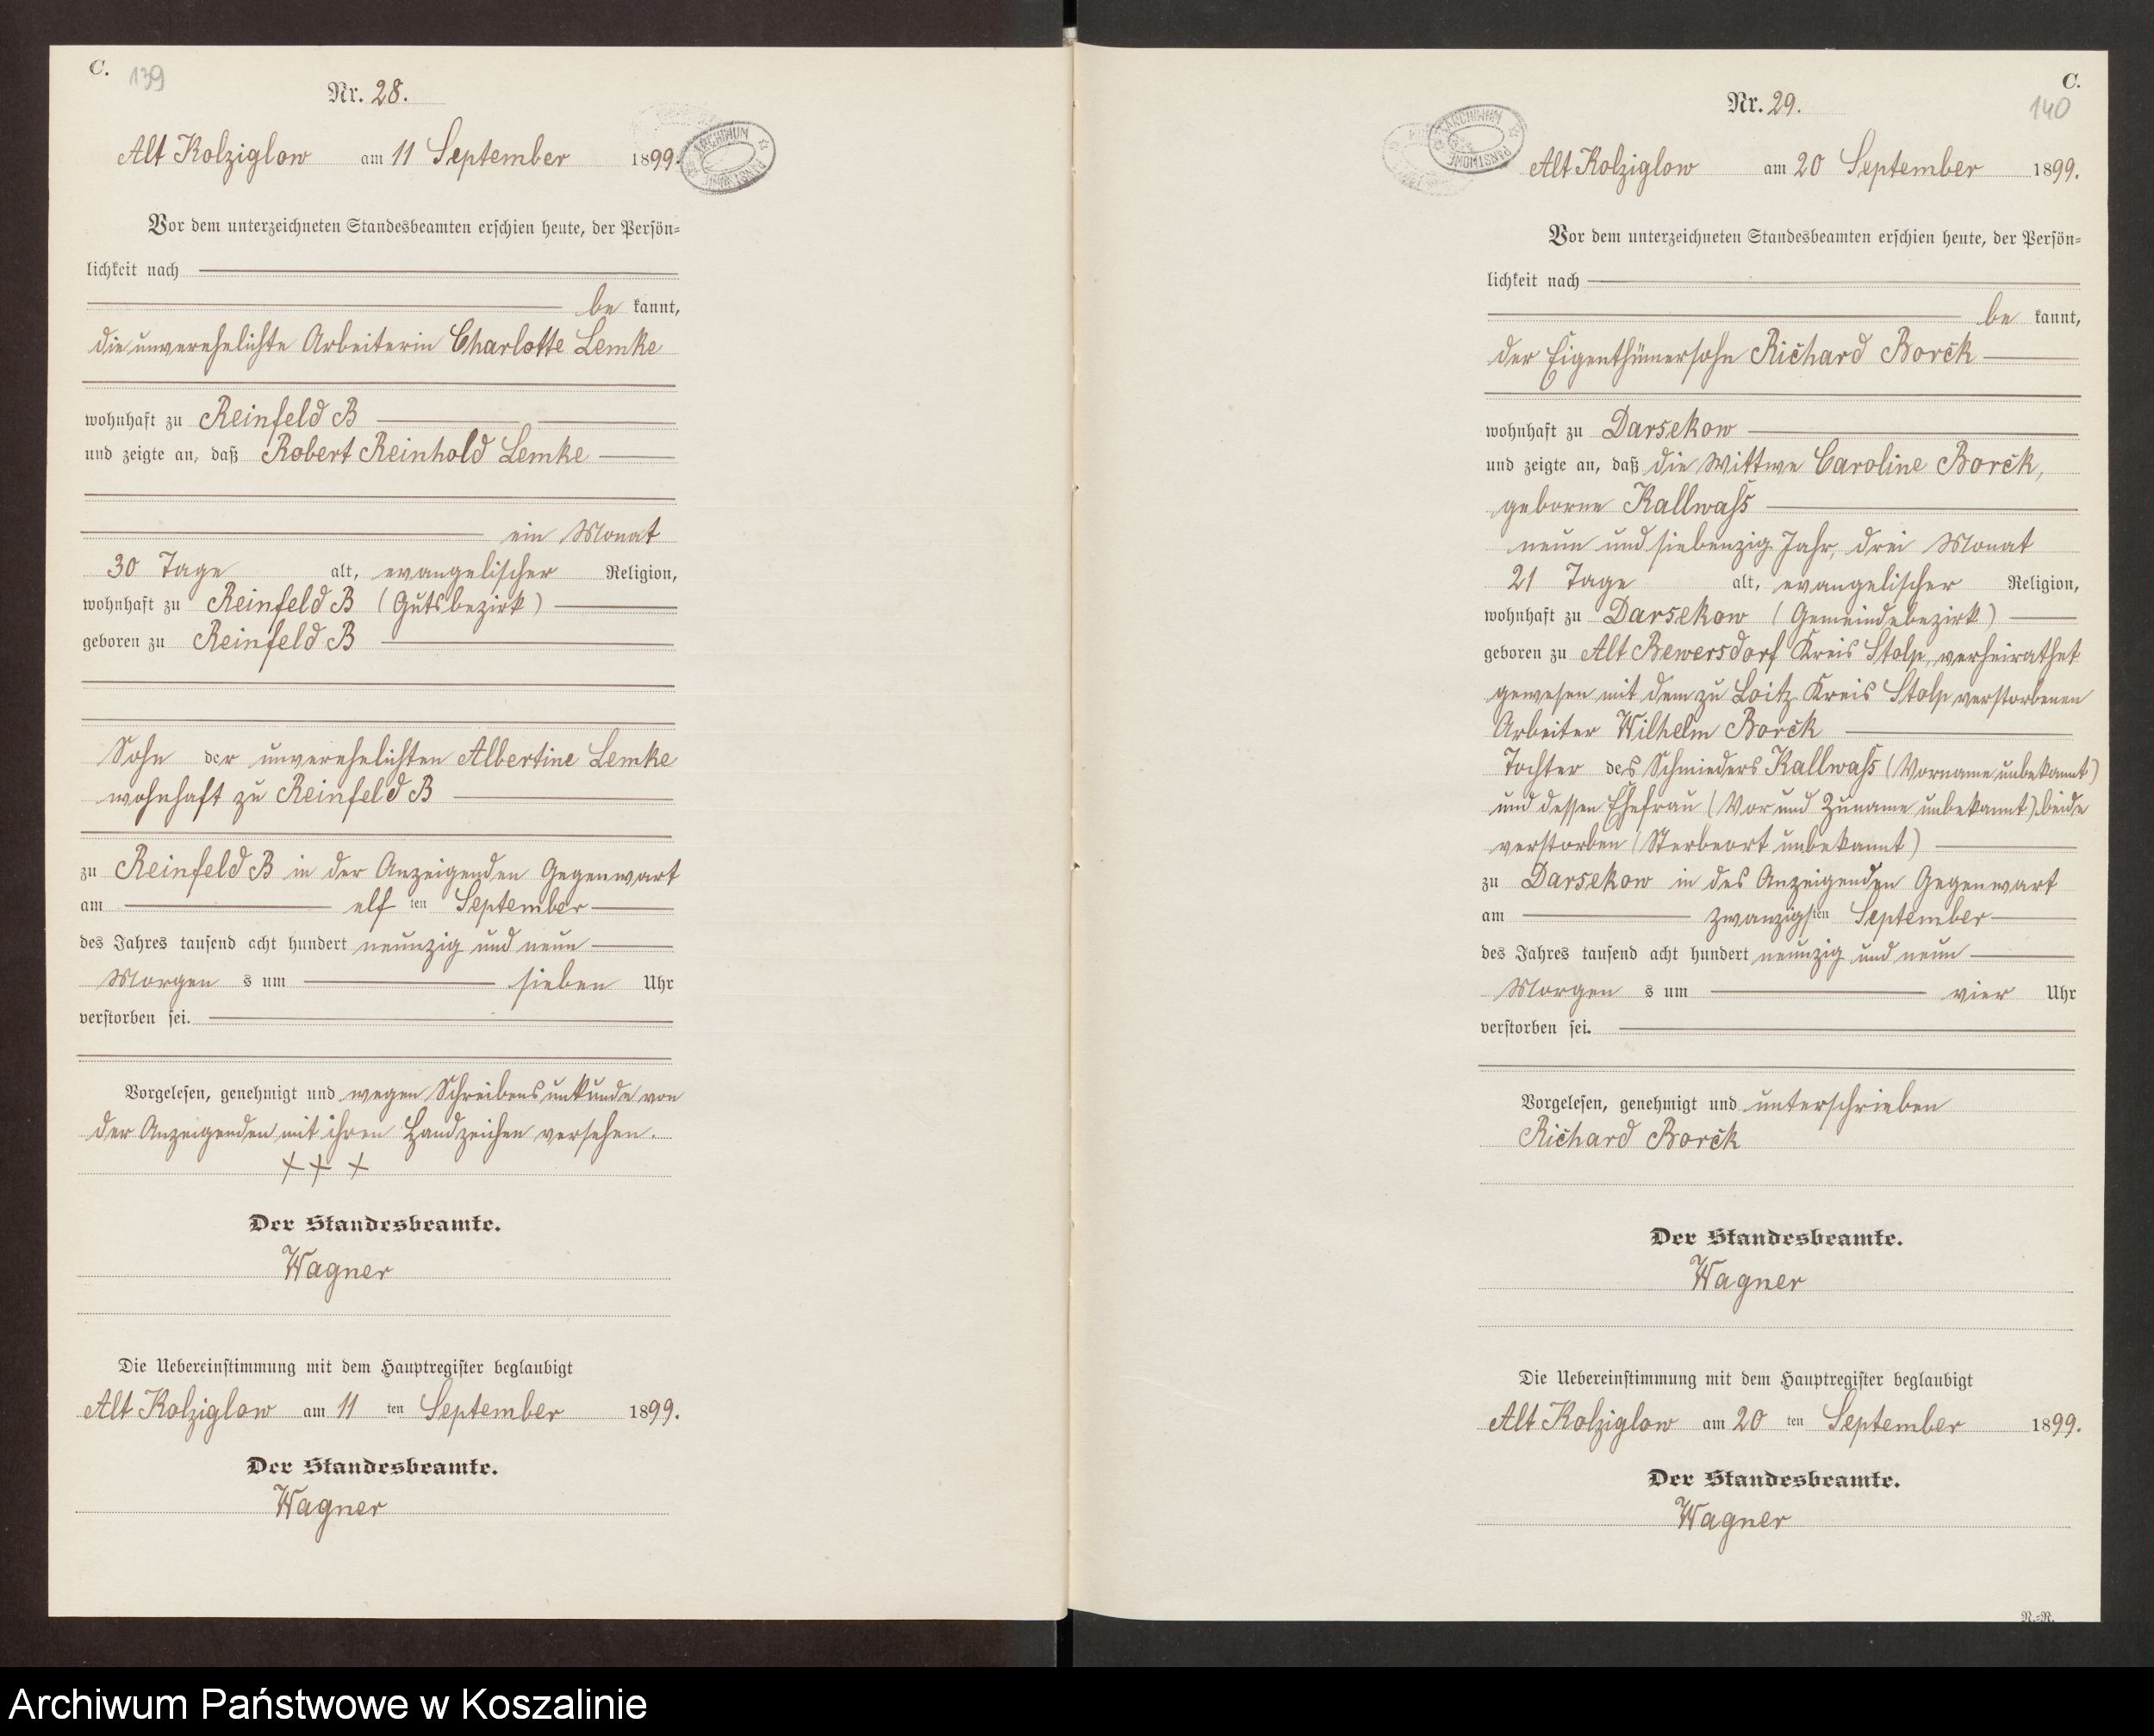 C.
139
Nr. 28.
Alt Kolziglow am 11 September 1899.
ARCHIWUM PAŃSTWOWE
Vor dem unterzeichneten Standesbeamten erschien heute, der Persön-
lichkeit nach
be kannt,
die unverehelichte Arbeiterin Charlotte Lemke
wohnhaft zu Reinfeld B
und zeigte an, daß Robert Reinhold Lemke
ein Monat
30 Tage alt, evangelischer Religion,
wohnhaft zu Reinfeld B (Gutsbezirk)
geboren zu Reinfeld B
Sohn der unverehelichten Albertine Lemke
wohnhaft zu Reinfeld B
zu Reinfeld B in der Anzeigenden Gegenwart
am elf ten September
des Jahres tausend acht hundert neunzig und neun
Morgen s um sieben Uhr
verstorben sei.
Vorgelesen, genehmigt und wegen Schreibensunkunde von
der Anzeigenden mit ihren Handzeichen versehen.
+ + +
Der Standesbeamte.
Wagner
Die Uebereinstimmung mit dem Hauptregister beglaubigt
Alt Kolziglow am 11 ten September 1899.
Der Standesbeamte.
Wagner
C.
140
Nr. 29.
ARCHIWUM PAŃSTWOWE
Alt Kolziglow am 20 September 1899.
Vor dem unterzeichneten Standesbeamten erschien heute, der Persön-
lichkeit nach
be kannt,
der Eigenthümersohn Richard Borck
wohnhaft zu Darsekow
und zeigte an, daß die Wittwe Caroline Borck,
geborne Kallwaß
neun und siebenzig Jahr, drei Monat
21 Tage alt, evangelischer Religion,
wohnhaft zu Darsekow (Gemeindebezirk)
geboren zu Alt Bewersdorf Kreis Stolp, verheirathet
gewesen mit dem zu Loitz Kreis Stolp verstorbenen
Arbeiter Wilhelm Borck
Tochter des Schmieders Kallwaß (Vorname unbekannt)
und dessen Ehefrau (Vor und Zuname unbekannt) beide
verstorben (Sterbeort unbekannt)
zu Darsekow in des Anzeigenden Gegenwart
am zwanzigsten September
des Jahres tausend acht hundert neunzig und neun
Morgen s um vier Uhr
verstorben sei.
Vorgelesen, genehmigt und unterschrieben
Richard Borck
Der Standesbeamte.
Wagner
Die Uebereinstimmung mit dem Hauptregister beglaubigt
Alt Kolziglow am 20 ten September 1899.
Der Standesbeamte.
Wagner
Archiwum Państwowe w Koszalinie